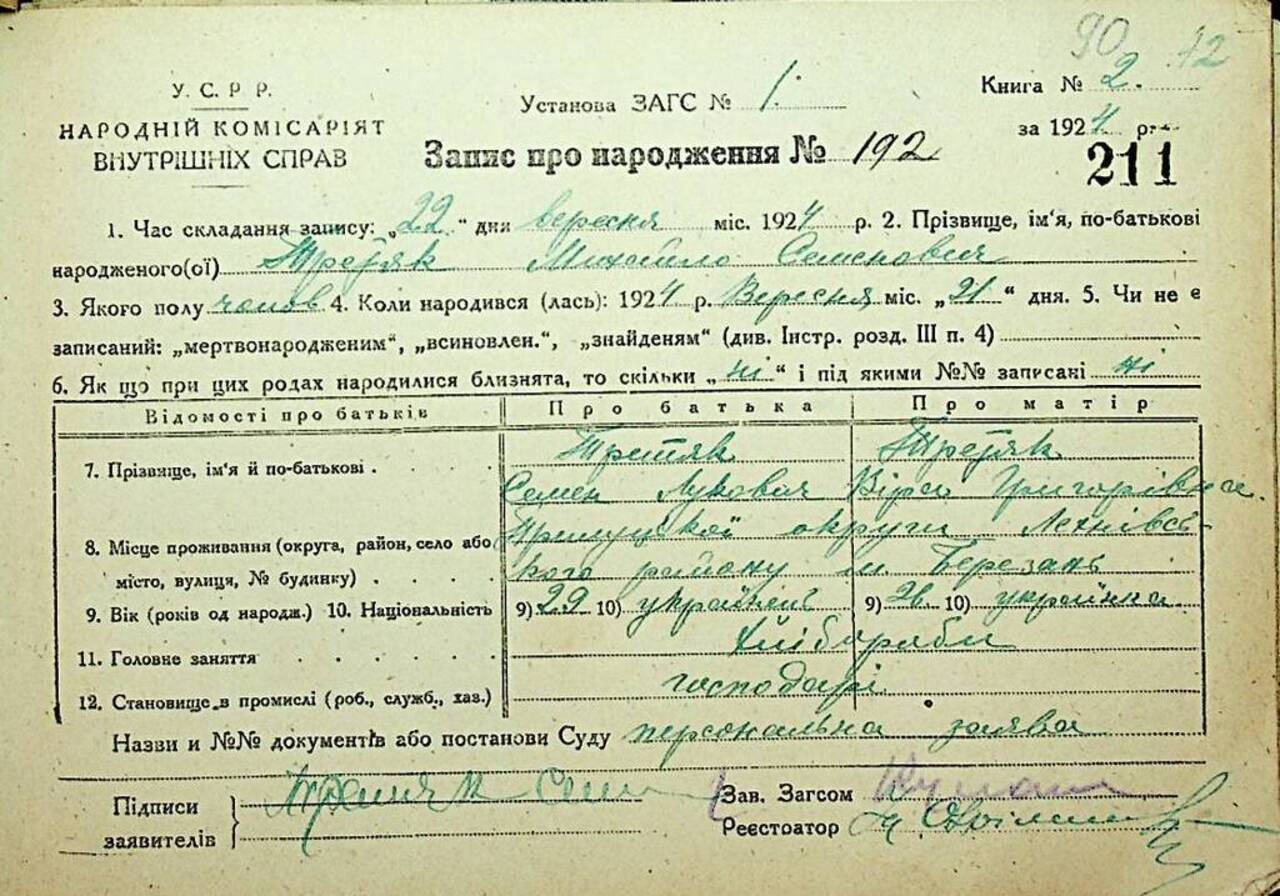 90 12
У. С. Р Р.
НАРОДНІЙ КОМІСАРІЯТ
ВНУТРІШНІХ СПРАВ
Установа ЗАГС № 1.
Книга № 2.
за 1924 р.
Запис про народження № 192
211
1. Час складання запису: „22" дня вересня міс. 1924 р. 2. Прізвище, ім'я, по-батькові
народженого(ої) Третяк Михайло Семенович
3. Якого полу чолов 4. Коли народився (лась): 1924 р. Вересня міс. „21" дня. 5. Чи не є
записаний: „мертвонародженим", „всиновлен.", „знайденям" (див. Інстр. розд. III п. 4)
6. Як що при цих родах народилися близнята, то скільки „ні" і під якими №№ записані ні
Відомості про батьків Про батька Про матір
7. Прізвище, ім'я й по-батькові . Третяк Третяк
Семен Лукович Віра Григорівна.
8. Місце проживання (округа, район, село або Прилуцької округи
місто, вулиця, № будинку) . . . . кого району м. Березань
9. Вік (років од народж.) 10. Національність 9) 29 10) українець 9) 26 10) українка
11. Головне заняття . . . . . . Хліборобы
12. Становище в промислі (роб., служб., хаз.) господарі.
Назви и №№ документів або постанови Суду персональна заява
Підписи
заявителів
Третяк
Зав. Загсом
Реєстоатор